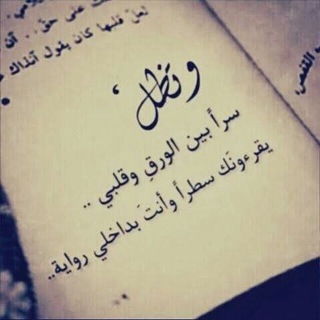 لعلّ قلبها كان يقول آنذاك
وتظل ،
سراً بين الورقِ وقلبي ..
يقرءونَك سطراً وأنتَ بداخلي رواية..